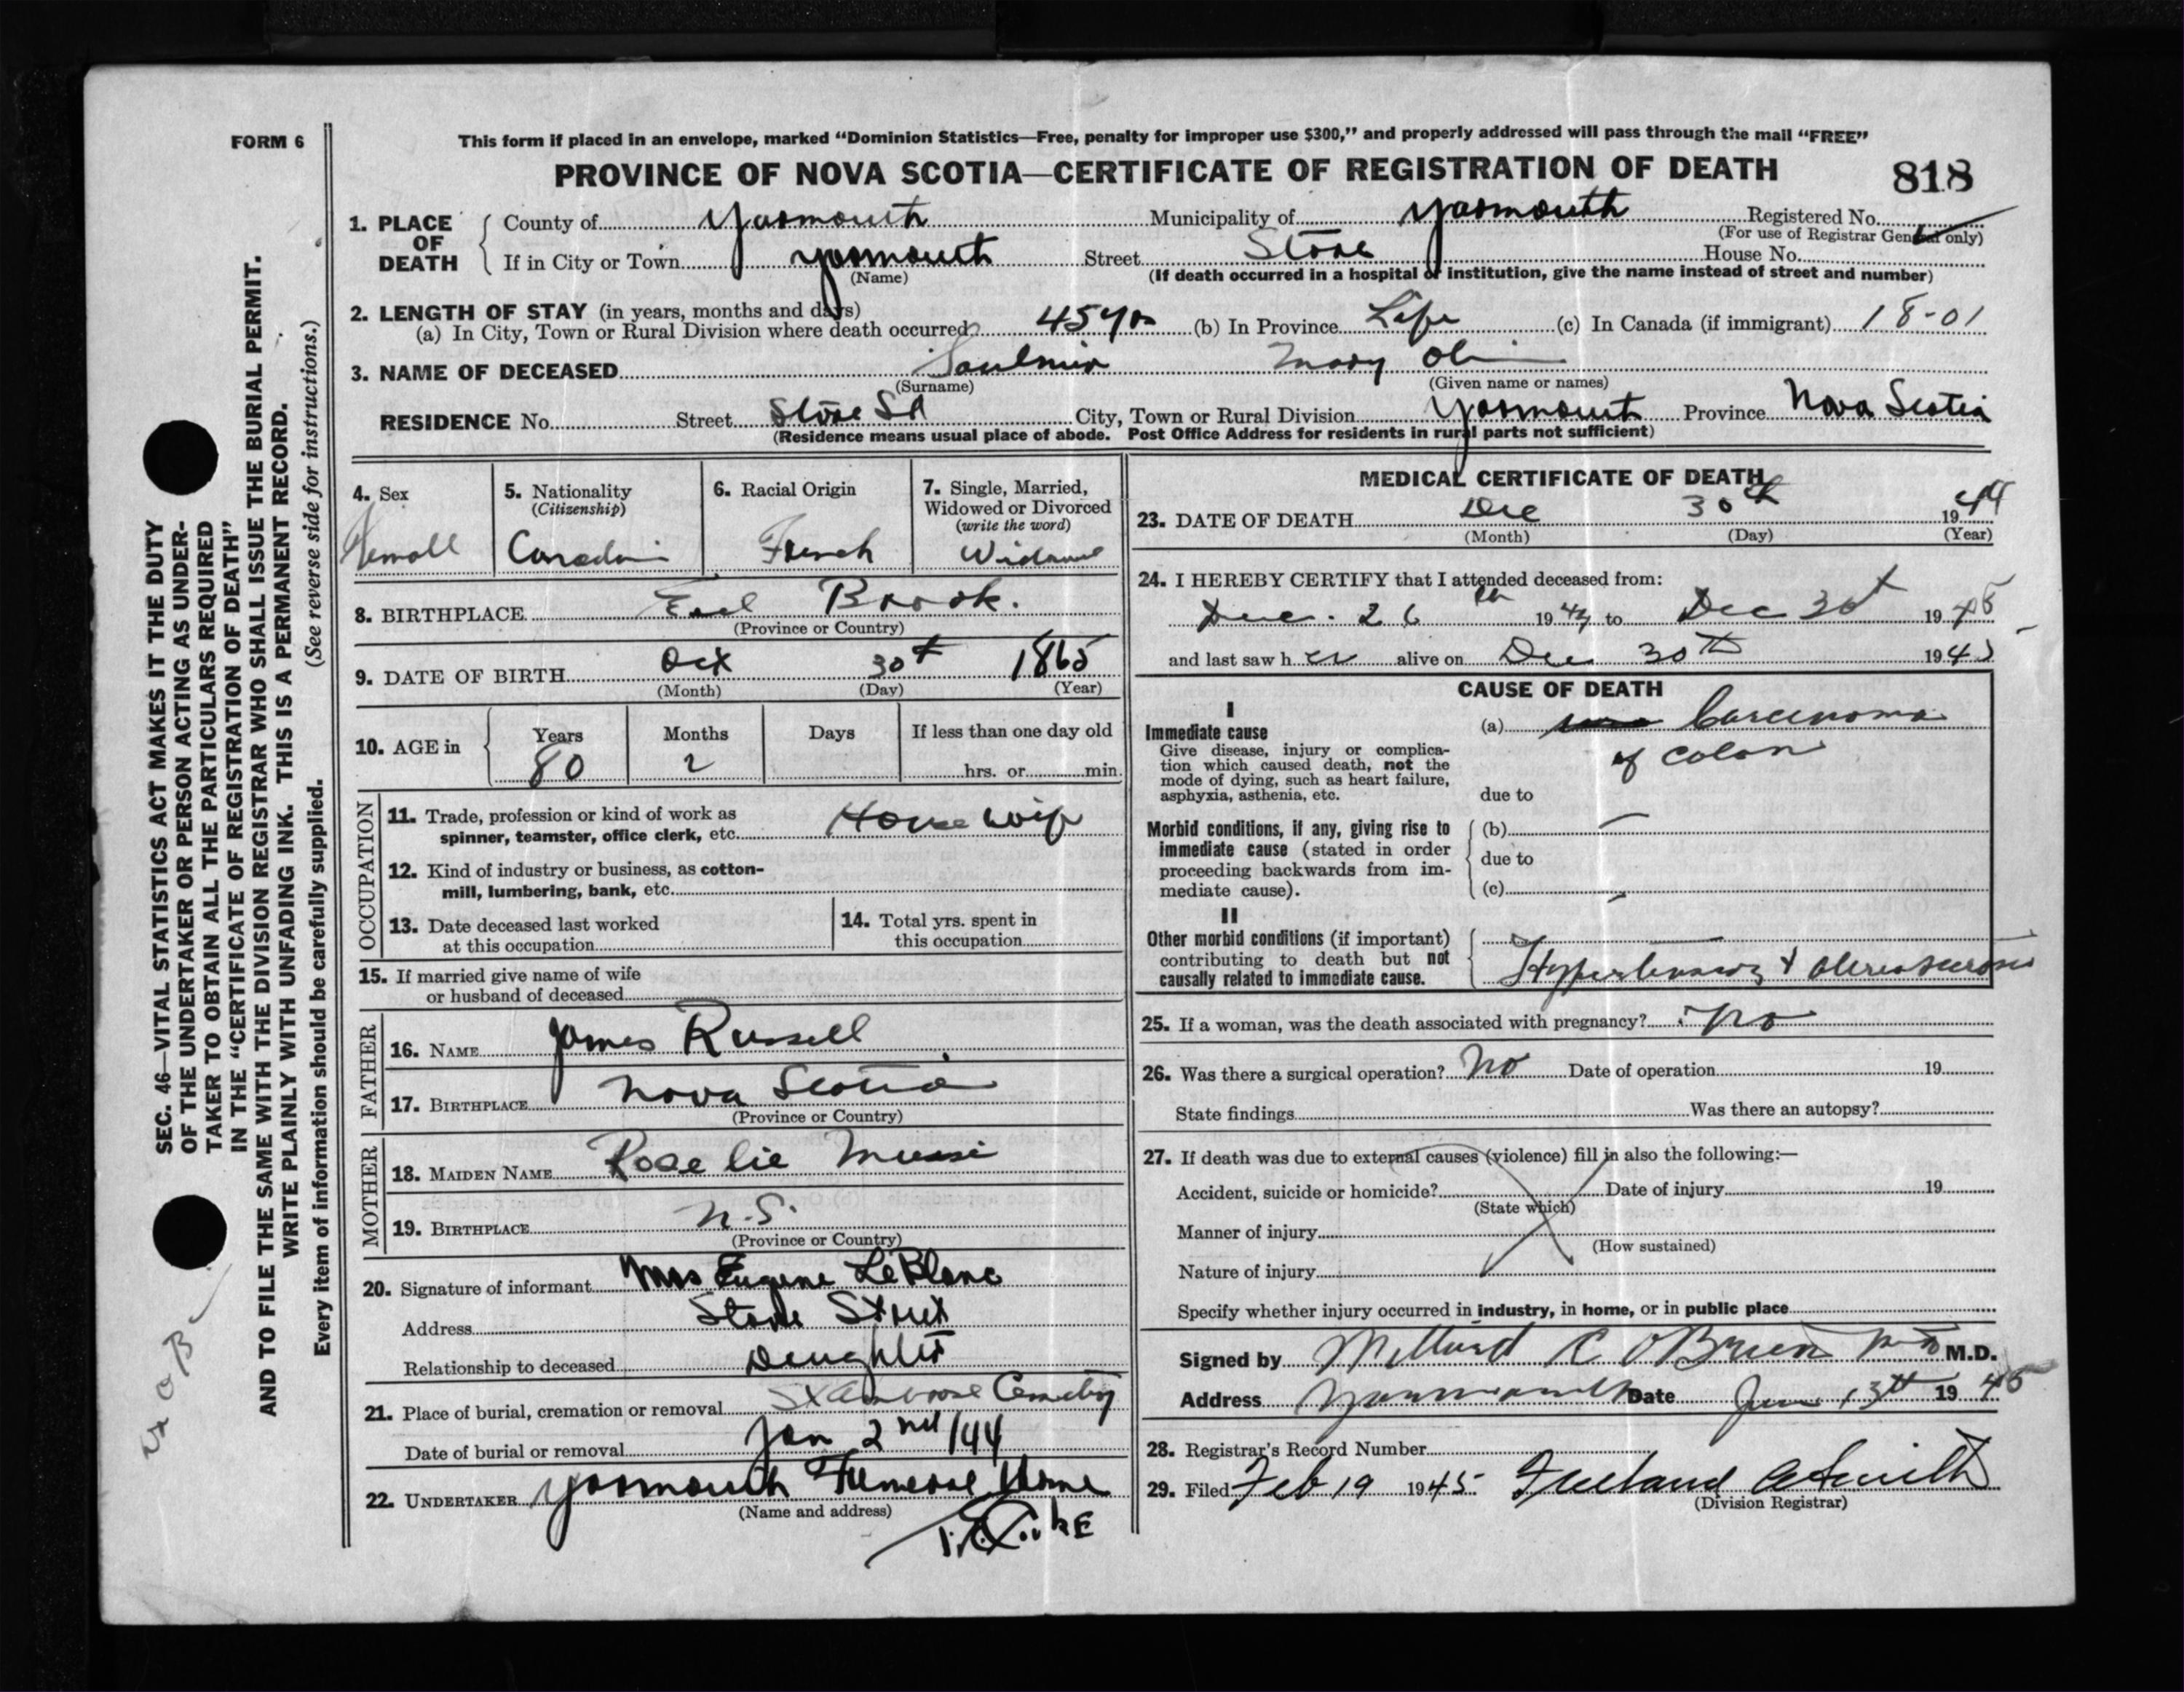 FORM 6
This form if placed in an envelope, marked "Dominion Statistics—Free, penalty for improper use $300," and properly addressed will pass through the mail "FREE"
PROVINCE OF NOVA SCOTIA—CERTIFICATE OF REGISTRATION OF DEATH
818
1. PLACE OF DEATH
County of Yarmouth Municipality of Yarmouth Registered No.
(For use of Registrar General only)
If in City or Town Yarmouth Street Stone House No.
(Name) (If death occurred in a hospital or institution, give the name instead of street and number)
2. LENGTH OF STAY (in years, months and days)
(a) In City, Town or Rural Division where death occurred 45 yrs (b) In Province Life (c) In Canada (if immigrant) 18-01
3. NAME OF DECEASED Saulnier Mary
(Surname) (Given name or names)
RESIDENCE No. Street Stone St City, Town or Rural Division Yarmouth Province Nova Scotia
(Residence means usual place of abode. Post Office Address for residents in rural parts not sufficient)
4. Sex
Female
5. Nationality
(Citizenship)
Canadian
6. Racial Origin
French
7. Single, Married, Widowed or Divorced
(write the word)
Widow
8. BIRTHPLACE Eel Brook.
(Province or Country)
9. DATE OF BIRTH Oct 30th 1865
(Month) (Day) (Year)
10. AGE in
Years Months Days If less than one day old
80 2 hrs. or min.
OCCUPATION
11. Trade, profession or kind of work as
spinner, teamster, office clerk, etc. House wife
12. Kind of industry or business, as cotton-
mill, lumbering, bank, etc.
13. Date deceased last worked
at this occupation
14. Total yrs. spent in
this occupation
15. If married give name of wife
or husband of deceased
FATHER
16. NAME James Russell
17. BIRTHPLACE Nova Scotia
(Province or Country)
MOTHER
18. MAIDEN NAME Rose lie
19. BIRTHPLACE N.S.
(Province or Country)
20. Signature of informant Mrs Eugene LeBlanc
Address Stone Street
Relationship to deceased Daughter
21. Place of burial, cremation or removal St Ambrose Cemetery
Date of burial or removal Jan 2nd/44
22. UNDERTAKER Yarmouth Funeral Home
(Name and address)
MEDICAL CERTIFICATE OF DEATH
23. DATE OF DEATH Dec 30th 1944
(Month) (Day) (Year)
24. I HEREBY CERTIFY that I attended deceased from:
Dec. 26th 19 to Dec 30th 1945
and last saw her alive on Dec 30th 1945
CAUSE OF DEATH
I
Immediate cause
Give disease, injury or complication which caused death, not the mode of dying, such as heart failure, asphyxia, asthenia, etc.
(a) Carcinoma
of colon
due to
Morbid conditions, if any, giving rise to immediate cause (stated in order proceeding backwards from immediate cause).
(b) —
due to
(c)
II
Other morbid conditions (if important) contributing to death but not causally related to immediate cause.
Hypertension &
25. If a woman, was the death associated with pregnancy? no
26. Was there a surgical operation? No Date of operation 19
State findings Was there an autopsy?
27. If death was due to external causes (violence) fill in also the following:—
Accident, suicide or homicide? Date of injury 19
(State which)
Manner of injury
(How sustained)
Nature of injury
Specify whether injury occurred in industry, in home, or in public place
Signed by Millard C O'Brien M.D.
Address Yarmouth Date 13th 1945
28. Registrar's Record Number
29. Filed Feb 19 1945
(Division Registrar)
SEC. 46—VITAL STATISTICS ACT MAKES IT THE DUTY
OF THE UNDERTAKER OR PERSON ACTING AS UNDER-
TAKER TO OBTAIN ALL THE PARTICULARS REQUIRED
IN THE "CERTIFICATE OF REGISTRATION OF DEATH"
AND TO FILE THE SAME WITH THE DIVISION REGISTRAR WHO SHALL ISSUE THE BURIAL PERMIT.
WRITE PLAINLY WITH UNFADING INK. THIS IS A PERMANENT RECORD.
Every item of information should be carefully supplied. (See reverse side for instructions.)